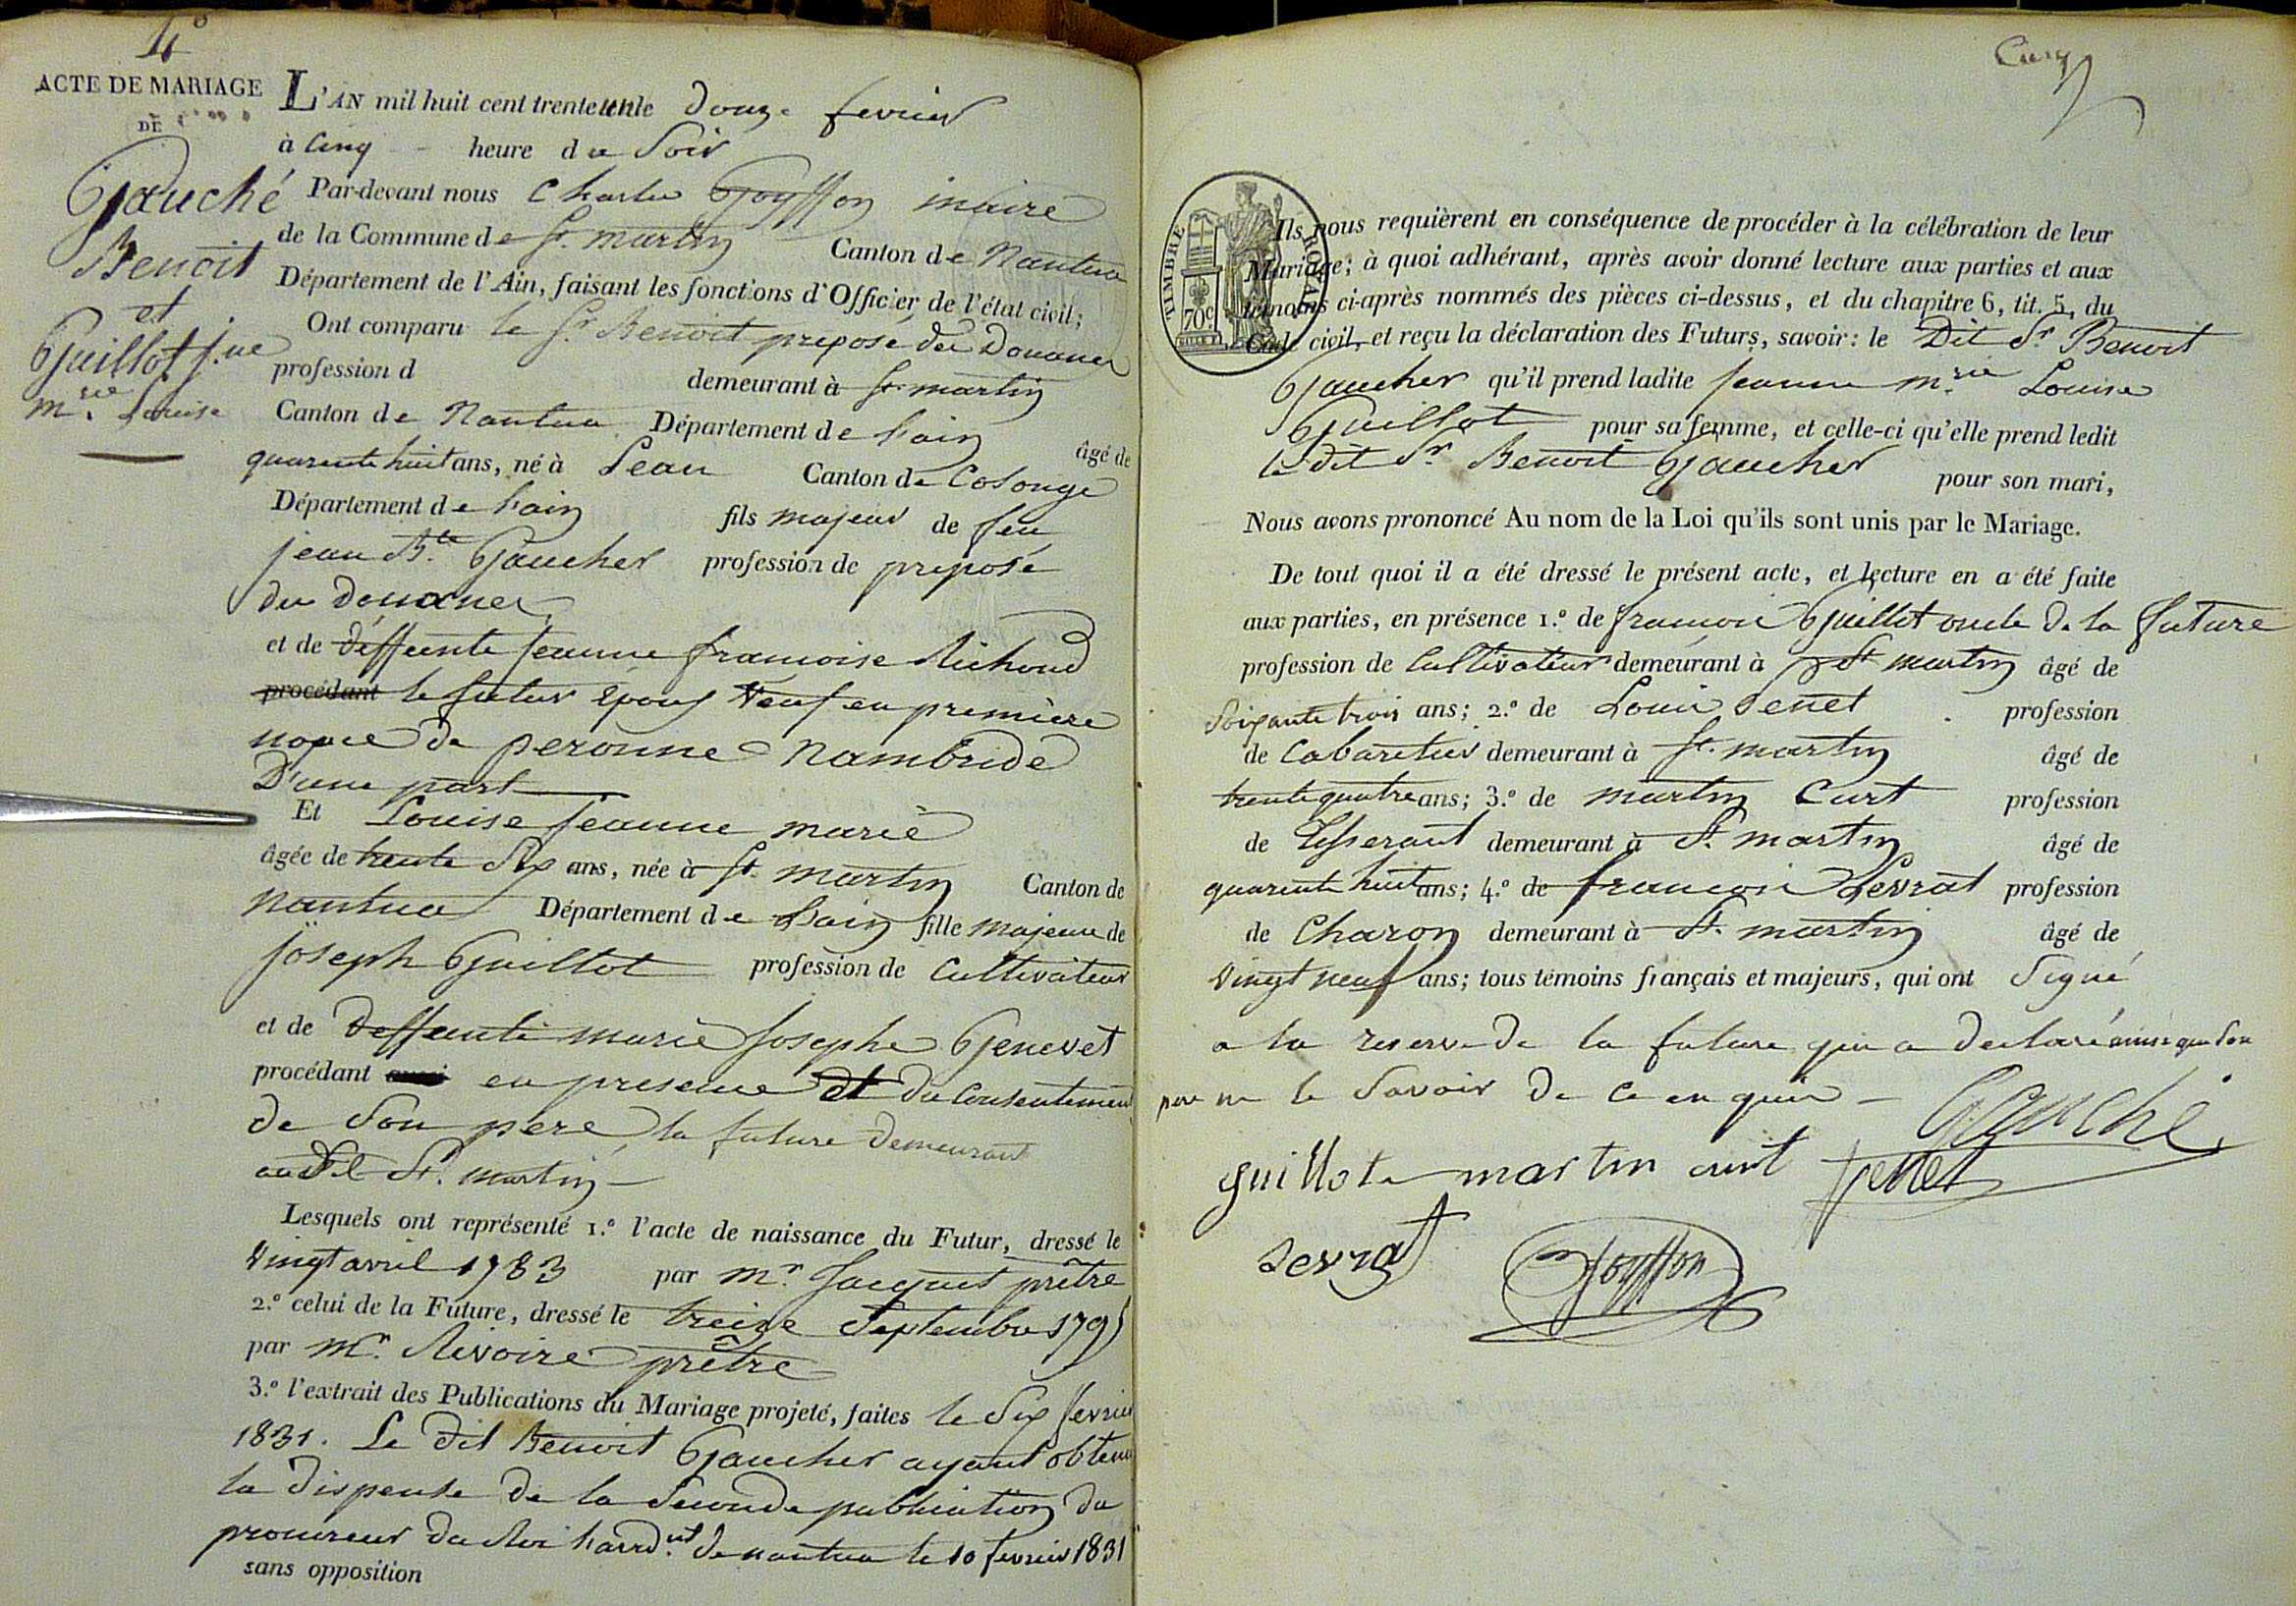 4°
ACTE DE MARIAGE
DE
Gauché
Benoit
et
Guillot j.ne
m.rie Louise
L'AN mil huit cent trente un le douze fevrier
à cinq heure du Soir
Par-devant nous Charles Goyffon maire
de la Commune de St. martin Canton de Nantua
Département de l'Ain, faisant les fonctions d'Officier de l'état civil;
Ont comparu le Sr. Benoit preposé des Douanes
profession d demeurant à St. martin
Canton de Nantua Département de l'ain âgé de
quarente huit ans, né à Lean Canton de Colonge
Département de l'ain fils majeur de feu
jean B.te Gaucher profession de preposé
des douanes
et de deffeunte jeanne francoise Richond
procédant le futur époux Veuf en première
noçce de peronne Nambride
D'une part
Et Louise jeanne marie
âgée de trente Six ans, née à St. martin Canton de
Nantua Département de l'ain fille majeure de
joseph Guillot profession de Cultivateur
et de deffeunte marie Josephe Genevet
procédant en presence et du Consentement
de Son pere, la future demeurant
audit St. martin
Lesquels ont représenté 1.° l'acte de naissance du Futur, dressé le
Vingt avril 1783 par mr. Jacquet prêtre
2.° celui de la Future, dressé le treize Septembre 1795
par mr. Rivoire prêtre
3.° l'extrait des Publications du Mariage projeté, faites le Six fevrier
1831. Le dit Benoit Gaucher ayant obtenu
la dispense de la Seconde publication du
procureur du Roi l'arrd.nt de nantua le 10 fevrier 1831
sans opposition
TIMBRE ROYAL
70c
Ils nous requièrent en conséquence de procéder à la célébration de leur
Mariage; à quoi adhérant, après avoir donné lecture aux parties et aux
témoins ci-après nommés des pièces ci-dessus, et du chapitre 6, tit. 5, du
Code civil, et reçu la déclaration des Futurs, savoir: le Dit Sr Benoit
Gaucher qu'il prend ladite jeanne m.rie Louise
Guillot pour sa femme, et celle-ci qu'elle prend ledit
le dit Sr Benoit Gaucher pour son mari,
Nous avons prononcé Au nom de la Loi qu'ils sont unis par le Mariage.
De tout quoi il a été dressé le présent acte, et lecture en a été faite
aux parties, en présence 1.° de francois Guillot oncle de la future
profession de Cultivateur demeurant à St martin âgé de
Soixante trois ans; 2.° de Louis Penet profession
de Cabaretier demeurant à St. martin âgé de
trente quatre ans; 3.° de martin Curt profession
de Tisserant demeurant à St. martin âgé de
quarente huit ans; 4.° de francois Sevrat profession
de Charon demeurant à St. martin âgé de
Vingt neuf ans; tous témoins français et majeurs, qui ont Signé
a la reserve de la future qui a declaré ainsi que Son
pere ne le Savoir de ce enquis
Gauché
guillot martin curt Penet
Sevrat Goyffon